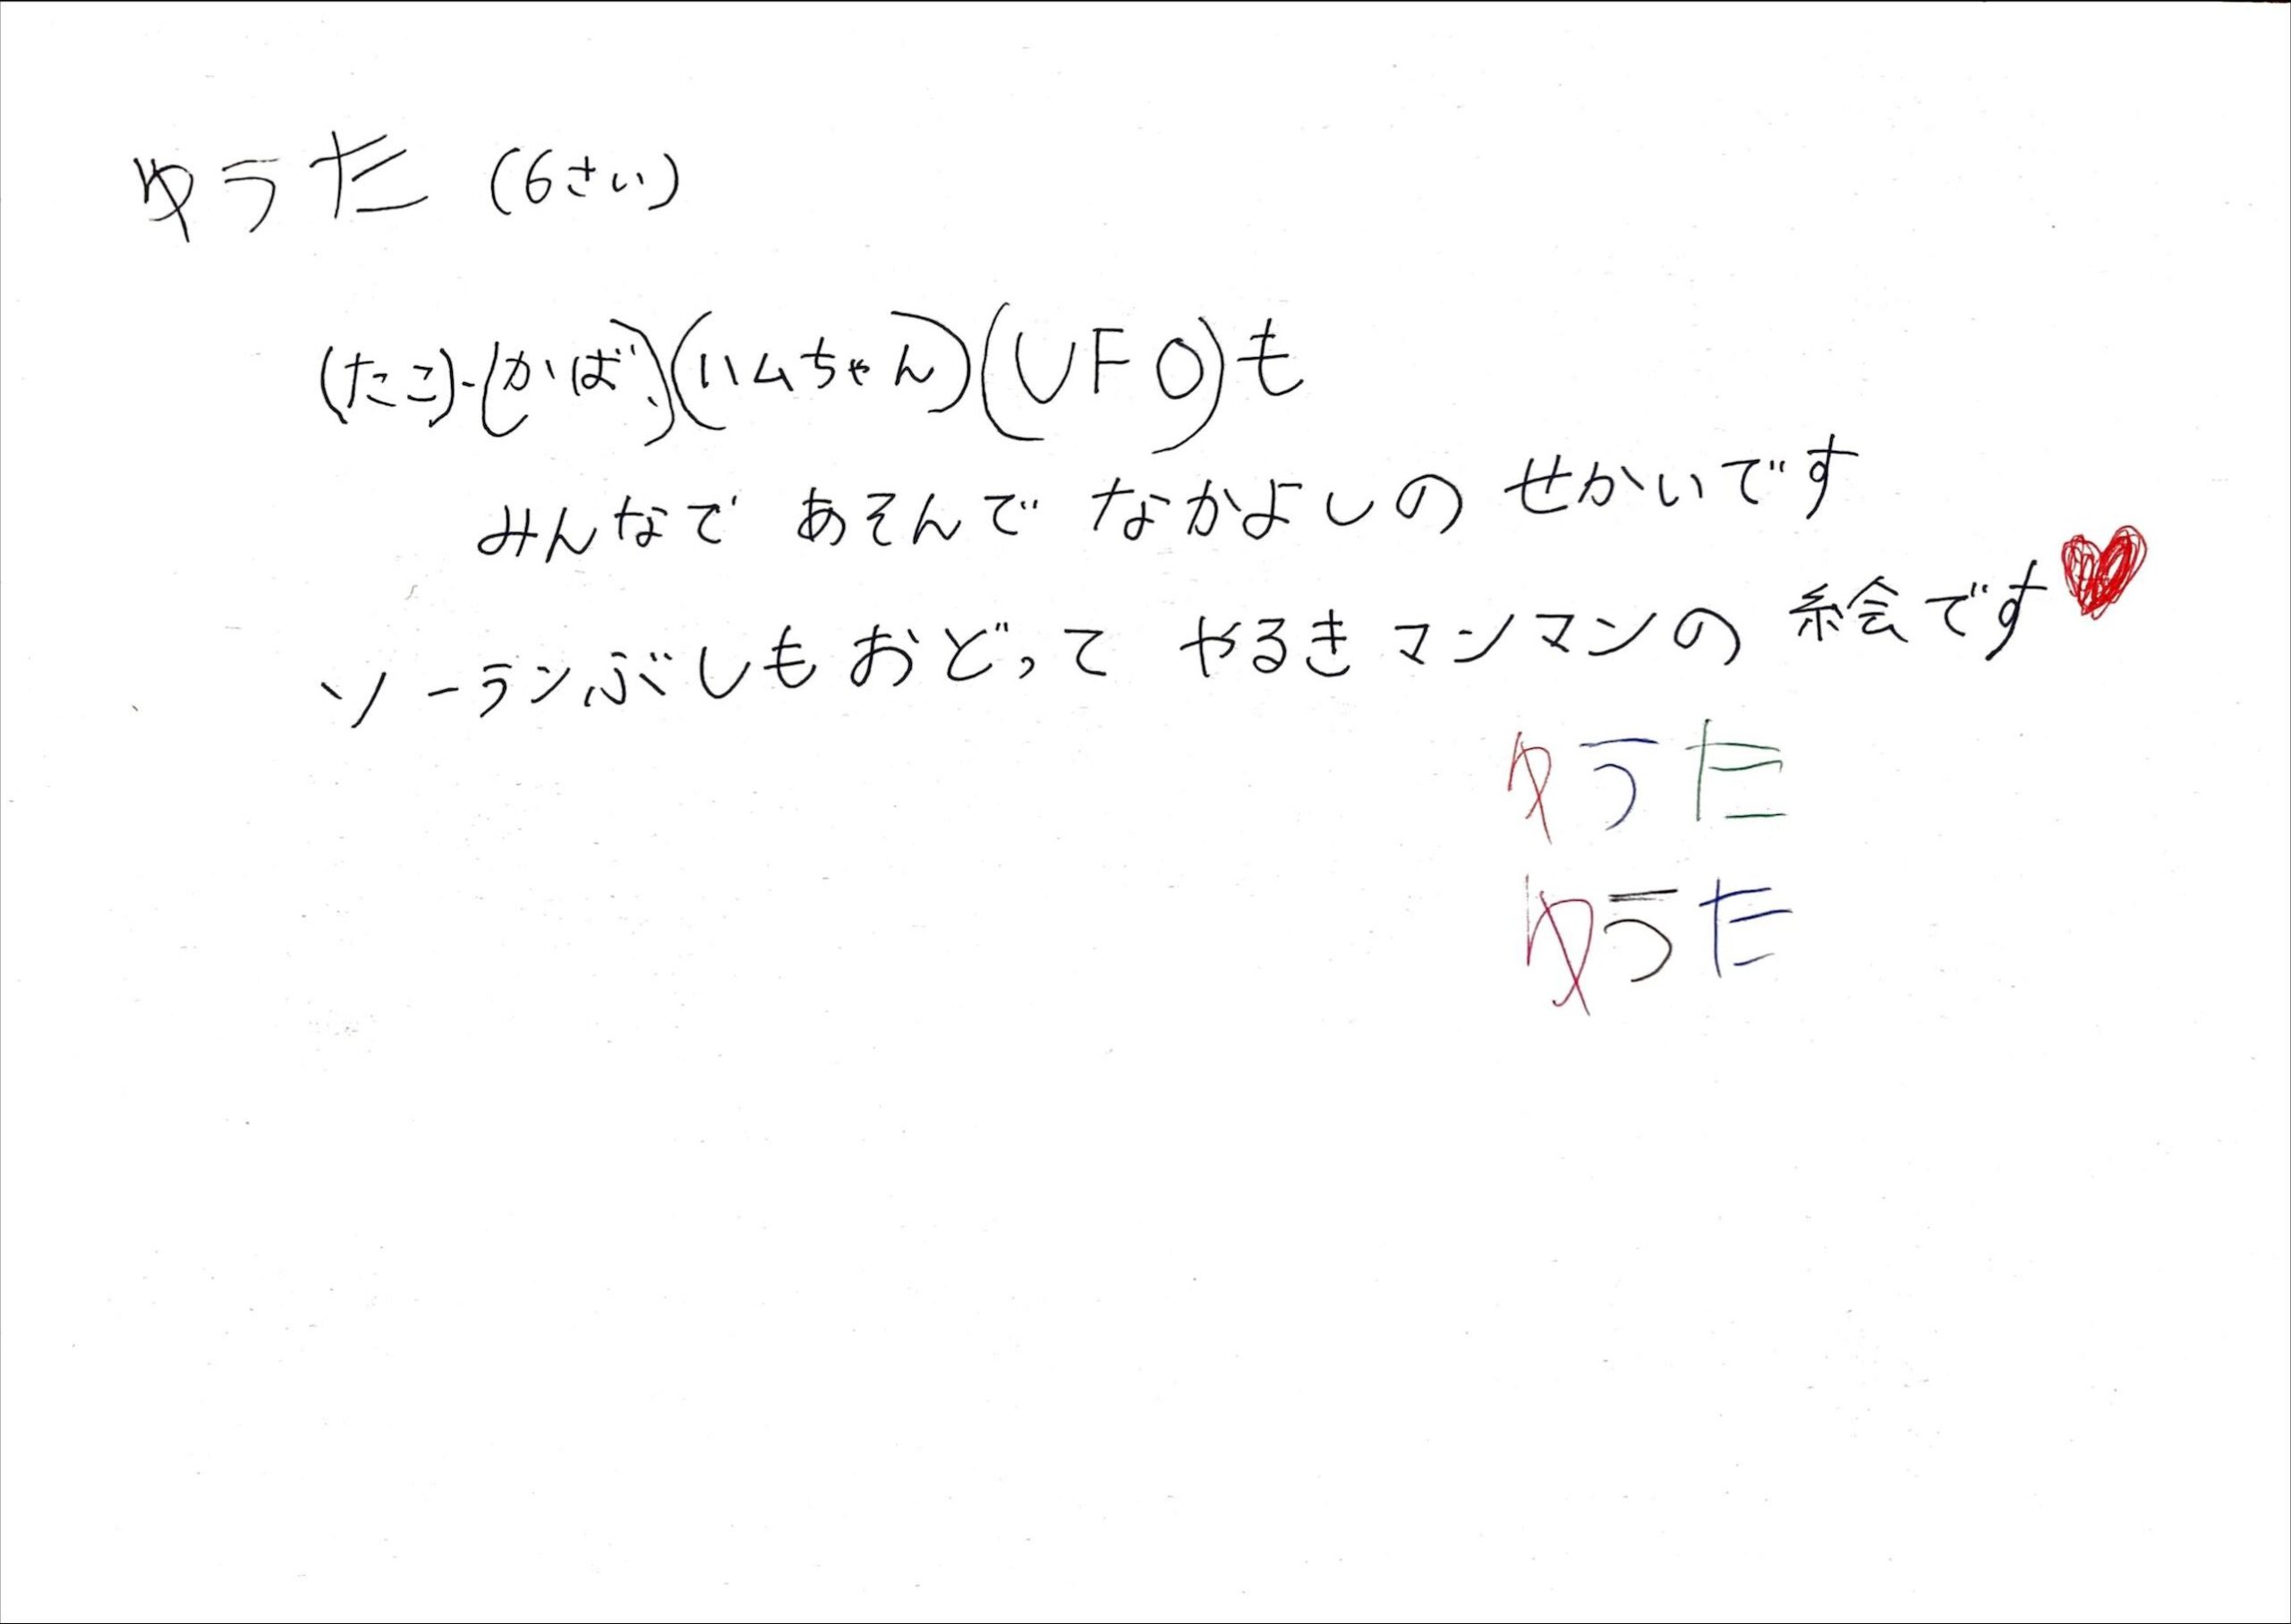 ゆうた (6さい)
(たこ)・(かば)、(ハムちゃん)(UFO)も
みんなで あそんで なかよしの せかいです
ソーランぶしも おどって やるきマンマンの 絵です♥
ゆうた
ゆうた